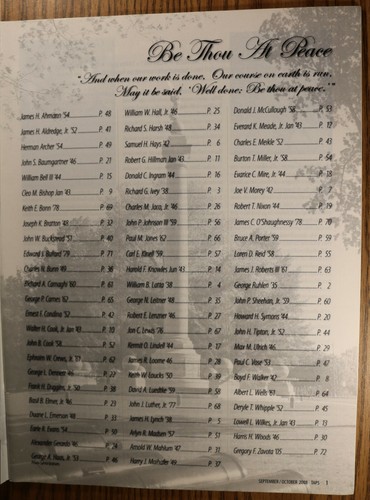 Be Thou At Peace
"And when our work is done, Our course on earth is run,
May it be said, 'Well done; Be thou at peace.'"
James H. Ahmann '54 P. 48
James H. Aldridge, Jr. '52 P. 41
Herman Archer '54 P. 49
John S. Baumgartner '46 P. 21
William Bell III '44 P. 15
Cleo M. Bishop Jan '43 P. 9
Keith E. Bonn '78 P. 69
Joseph K. Bratton '48 P.
John W. Buckstead '51 P. 40
Edward J. Bullard '79 P. 71
Charles W. Bunn '49 P. 36
Richard A. Carnaghi '60 P. 61
George P. Carnes '62 P. 65
Ernest L. Condina '52 P. 42
Walter H. Cook, Jr Jan '43 P. 10
John B. Cook '58 P. 52
Ephraim W. Crews, Jr. P. 62
George L. Dennett '46 P. 23
Frank H. Duggins, Jr. '50 P. 38
Basil B. Elmer, Jr. '46 P. 23
Duane L. Emerson '48 P. 33
Earle B. Evans '54 P. 50
Alexander Gerardo '46 P. 24
George A. Haas, Jr. '53 P. 46
William W. Hall, Jr. '46 P. 25
Richard S. Harsh '48 P. 34
Samuel H. Hays '42 P. 6
Robert G. Hillman Jan '43 P. 11
Donald C. Ingram '44 P. 16
Richard G. Ivey '38 P. 3
Charles M. Jaco, Jr. '46 P. 26
John P. Johnson III '59 P. 56
Paul M. Jones '62 P. 66
Carl E. Kinell '59 P. 57
Harold F. Knowles Jun '43 P. 14
William B. Latta '38 P. 4
George N. Leitner '48 P. 35
Robert E. Lenzner '46 P. 27
Jon C. Lewis '76 P. 67
Kermit O. Lindell '44 P. 17
James R. Loome '46 P. 28
Keith W. Loucks '50 P. 39
David A. Lundtile '59 P. 58
John J. Luther, Jr. '77 P. 68
James H. Lynch '38 P. 5
Arlyn R. Madsen '51 P. 51
Arnold W. Mahlum '47 P. 31
Harry J. Maihafer '49 P. 37
Donald J. McCullough '56 P. 53
Everard K. Meade, Jr. Jan '43 P. 12
Charles E. Meikle '52 P. 43
Burton T. Miller, Jr. '58 P. 54
Evarice C. Mire, Jr. '44 P. 18
Joe V. Morey '42 P. 7
Robert T. Nixon '44 P. 19
James C. O'Shaughnessy '78 P. 70
Bruce A. Porter '59 P. 59
Loren D. Reid '58 P. 55
James J. Roberts III '61 P. 63
George Ruhlen '35 P. 2
John P. Sheehan, Jr. '59 P. 60
Howard H. Symons '44 P. 20
John H. Tipton, Jr. '52 P. 44
Max M. Ulrich '46 P. 29
Paul C. Vose '53 P. 47
Boyd F. Walker '42 P. 8
Albert L. Wells '61 P. 64
Deryle T. Whipple '52 P. 45
Lowell L. Wilkes, Jr. Jan '43 P. 13
Harris H. Woods '46 P. 30
Gregory F. Zavota '05 P. 72
SEPTEMBER/OCTOBER 2008 TAPS 1